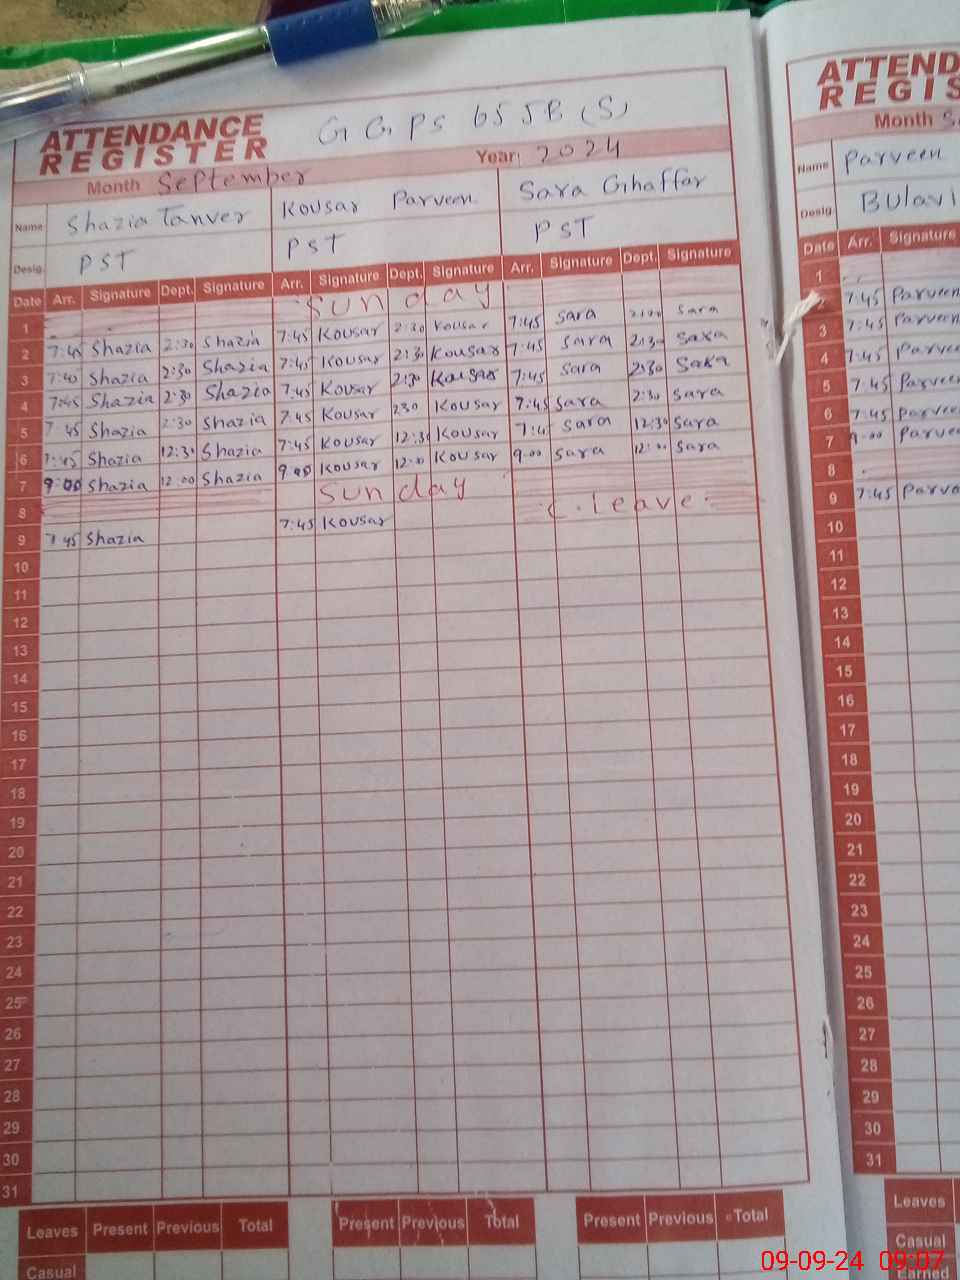 ATTENDANCE
REGISTER
G G PS 65 JB (S)
Month September Year: 2024
Name Shazia Tanver Kousar Parveen Sara Ghaffar
Desig. PST PST PST
Date Arr. Signature Dept. Signature Arr. Signature Dept. Signature Arr. Signature Dept. Signature
1 Sunday
2 7:45 Shazia 2:30 Shazia 7:45 Kousar 2:30 Kousar 7:45 Sara Sara
3 7:40 Shazia 2:30 Shazia 7:45 Kousar 2:30 Kousar 7:45 Sara 2:30 Sara
4 7:45 Shazia 2:30 Shazia 7:45 Kousar 2:30 Kousar 7:45 Sara 2:30 Sara
5 7:45 Shazia 2:30 Shazia 7:45 Kousar 2:30 Kousar 7:45 Sara 2:30 Sara
6 7:45 Shazia 12:30 Shazia 7:45 Kousar 12:30 Kousar 7:45 Sara 12:30 Sara
7 9:00 Shazia 12:00 Shazia 9:00 Kousar 12:00 Kousar 9:00 Sara 12:00 Sara
8 Sunday
9 7:45 Shazia 7:45 Kousar C. leave
10
11
12
13
14
15
16
17
18
19
20
21
22
23
24
25
26
27
28
29
30
31
Leaves Present Previous Total Present Previous Total Present Previous Total
Casual
ATTEND
REGIS
Month
Name Parveen
Desig. Bulavi
Date Arr. Signature
1
2 7:45 Parveen
3 7:45 Parveen
4 7:45 Parvee
5 7:45 Parvee
6 7:45 Parvee
7 9:00 Parvee
8
9 7:45 Parve
10
11
12
13
14
15
16
17
18
19
20
21
22
23
24
25
26
27
28
29
30
31
Leaves
Casual
Earned
09-09-24 09:07